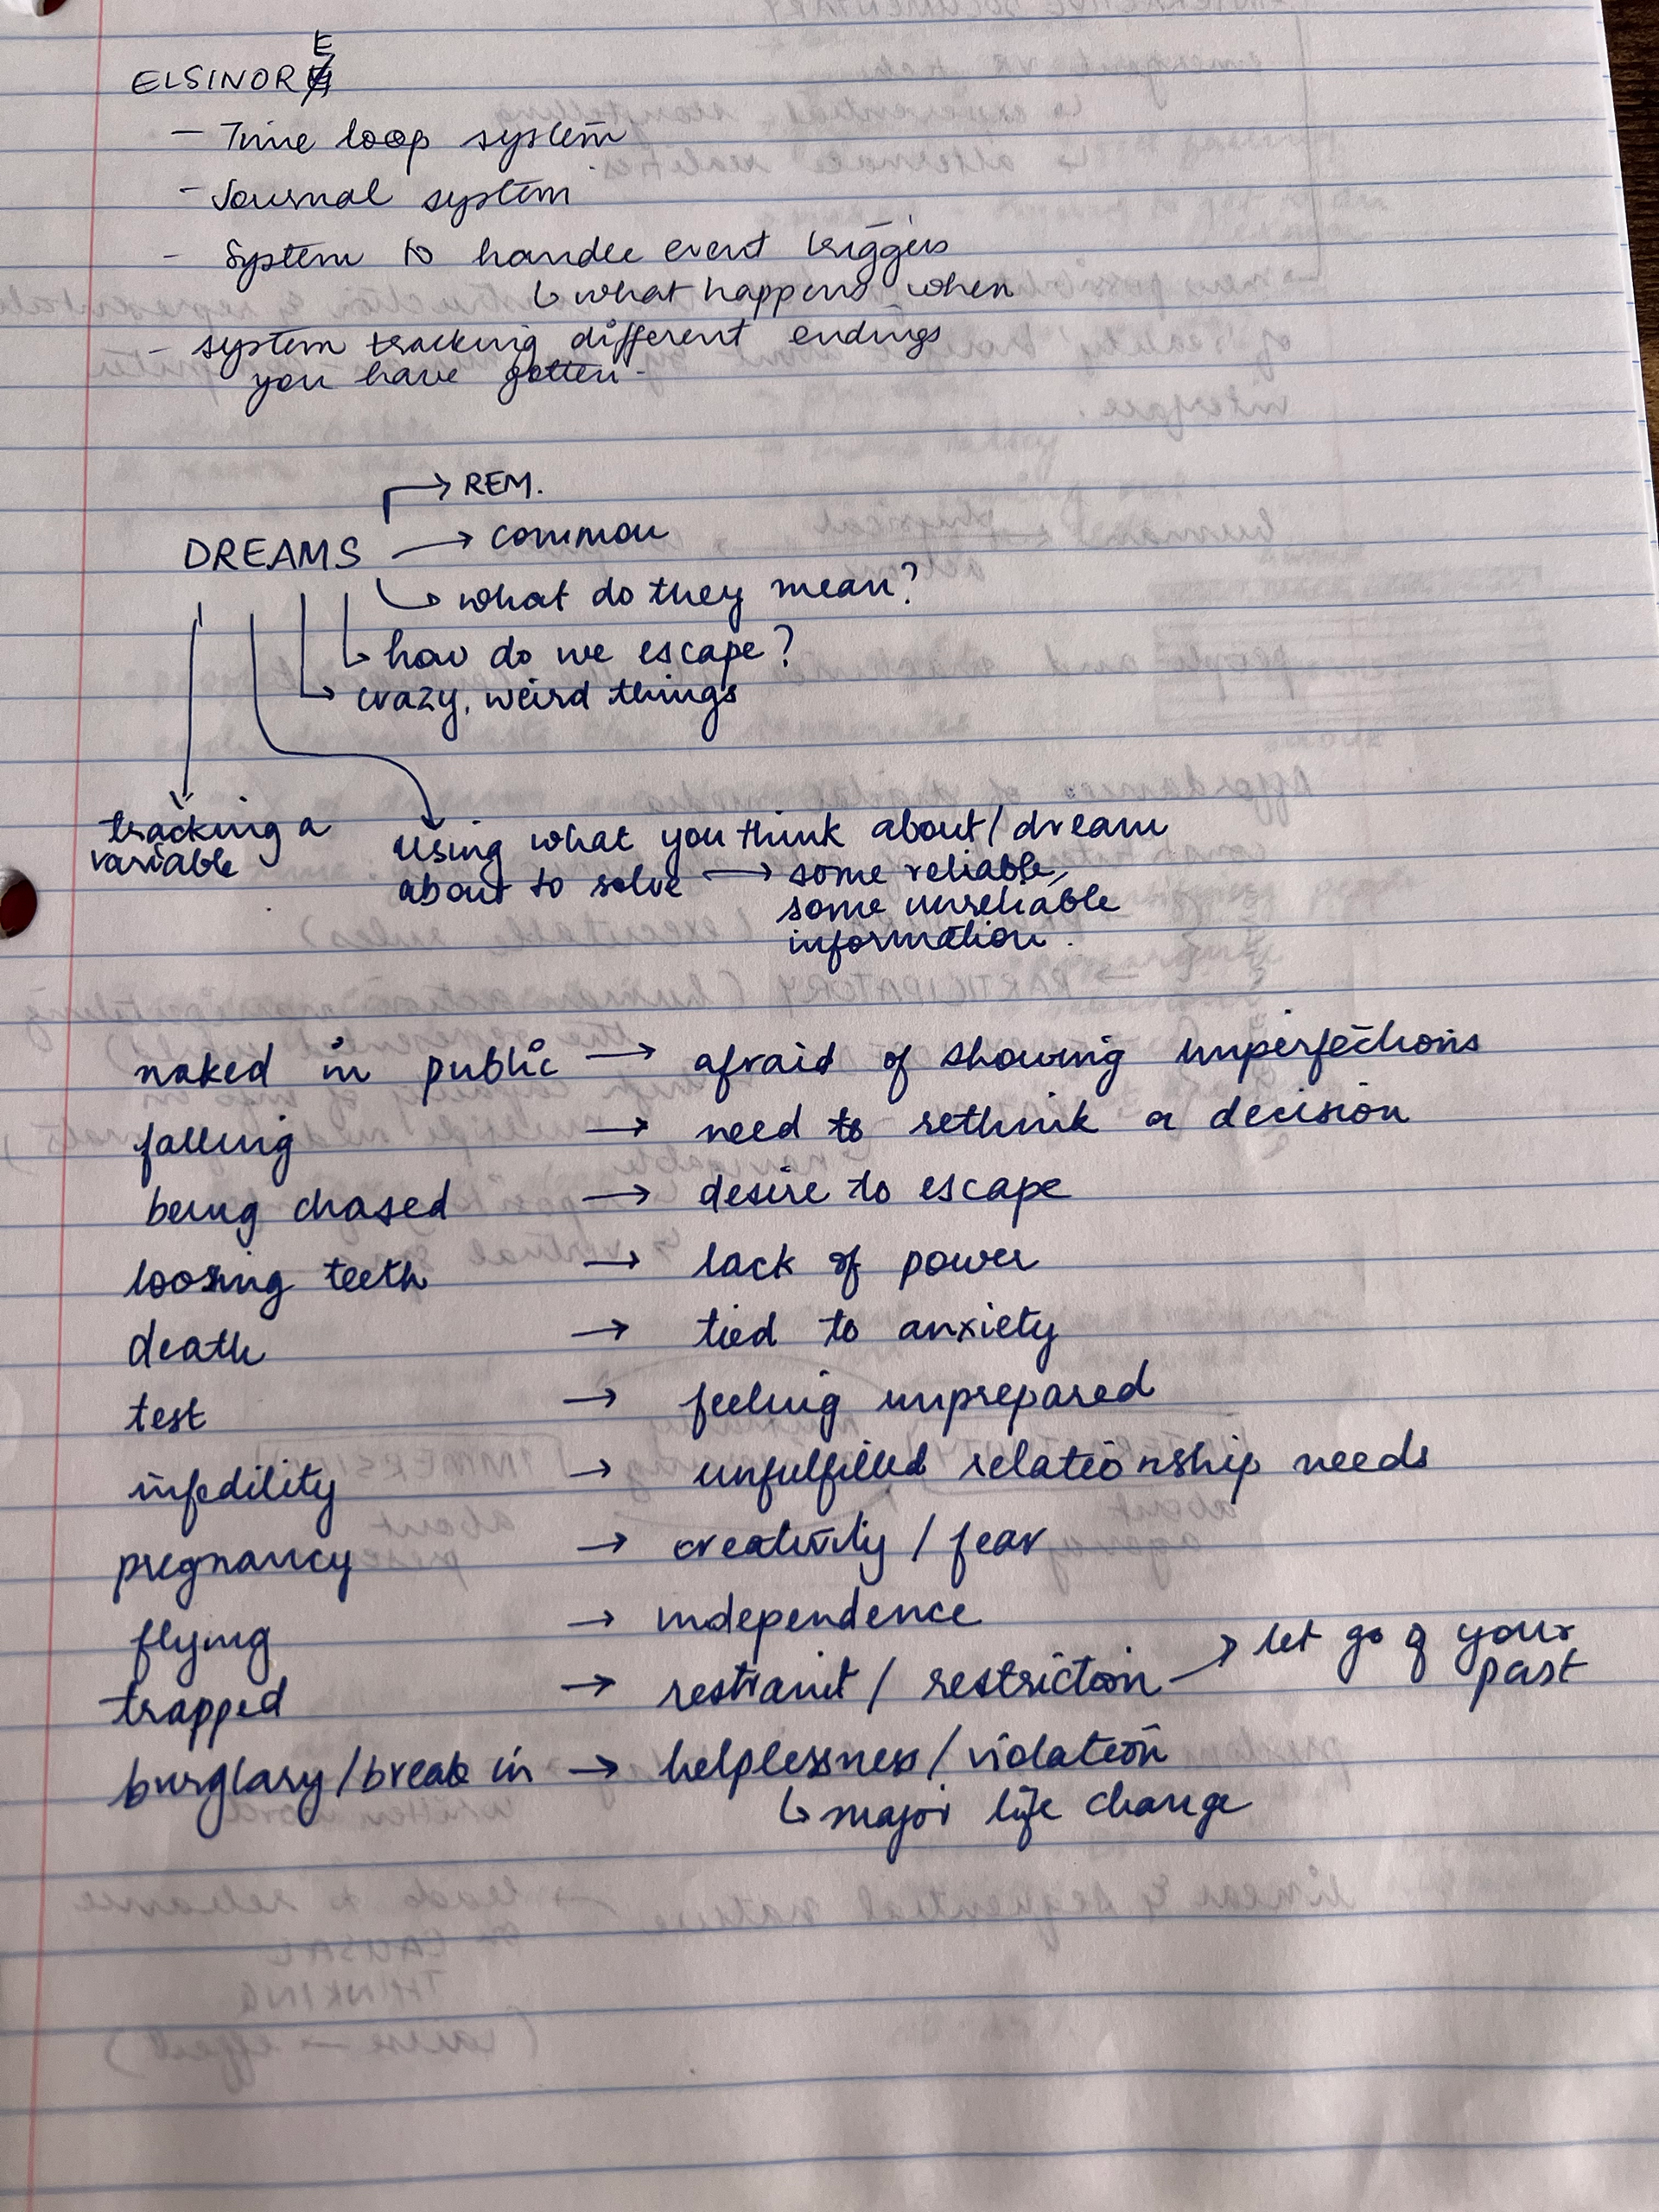 ELSINORE
- Time loop system
- Journal system
- System to handle event triggers
↳ what happens when
- system tracking different endings
you have gotten.
→ REM.
DREAMS → common
↳ what do they mean?
↳ how do we escape?
↳ crazy, weird things
tracking a
variable
Using what you think about/dream
about to solve → some reliable,
some unreliable
information.
naked in public → afraid of showing imperfections
falling → need to rethink a decision
being chased → desire to escape
loosing teeth → lack of power
death → tied to anxiety
test → feeling unprepared
infedility → unfulfilled relationship needs
pregnancy → creativity / fear
flying → independence
trapped → restraint / restriction → let go of your
past
burglary/break in → helplessness/violation
↳ major life change